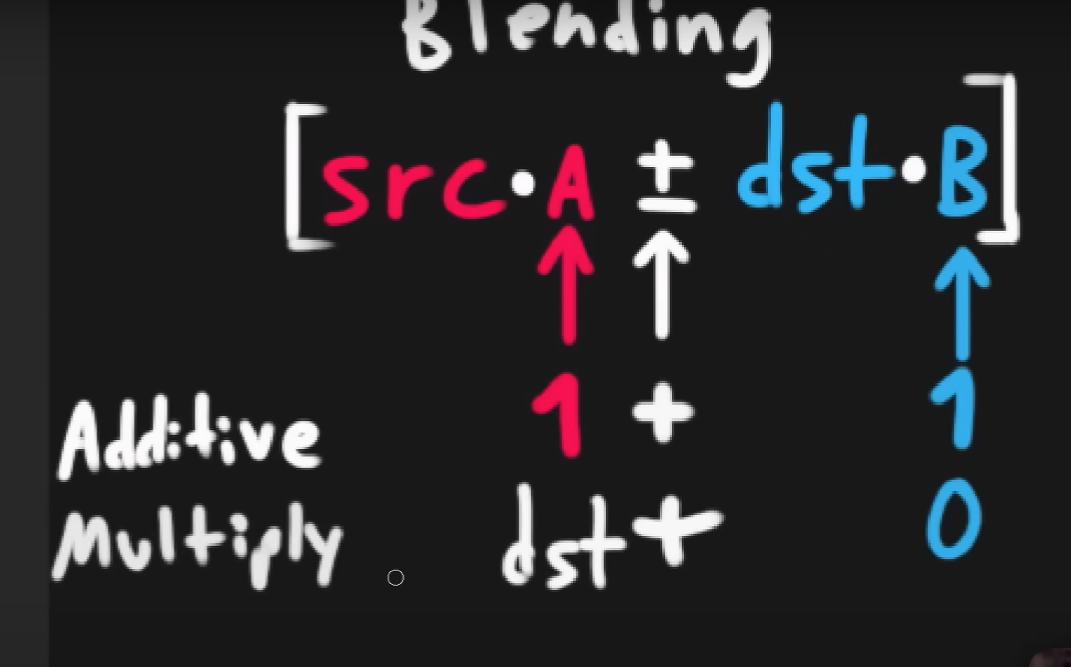 Blending
[src·A ± dst·B]
1 + 1
Additive
Multiply dst + 0